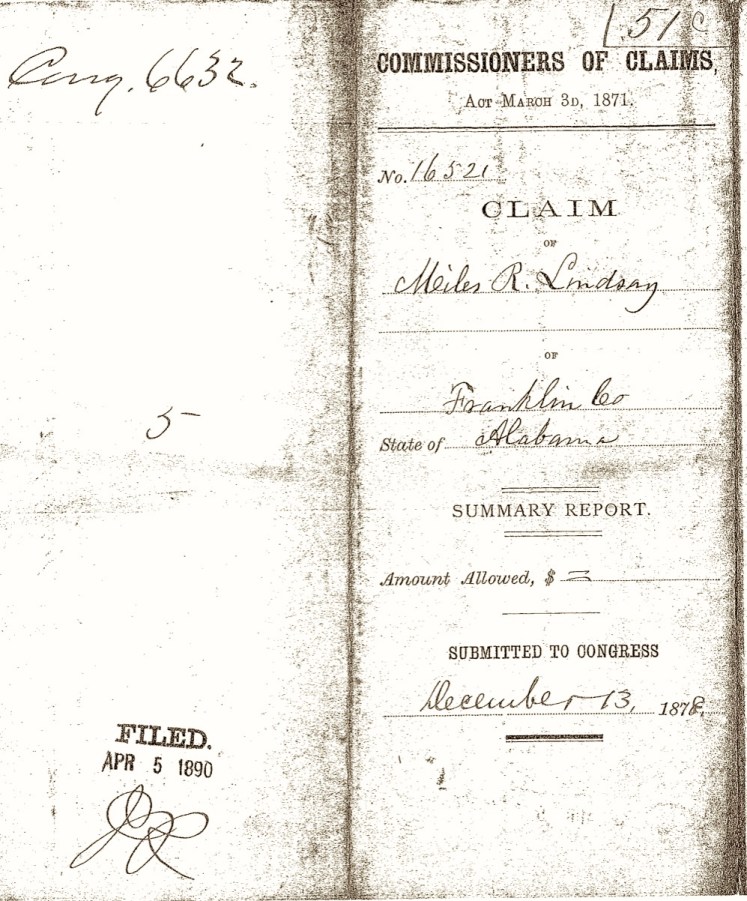 Cong. 6632.
5
FILED.
APR 5 1890
51 C
COMMISSIONERS OF CLAIMS,
ACT MARCH 3D, 1871.
No. 16521
CLAIM
OF
Miles R. Lindsay
OF
Franklin Co
State of Alabama
SUMMARY REPORT.
Amount Allowed, $ =
SUBMITTED TO CONGRESS
December 13, 1878,